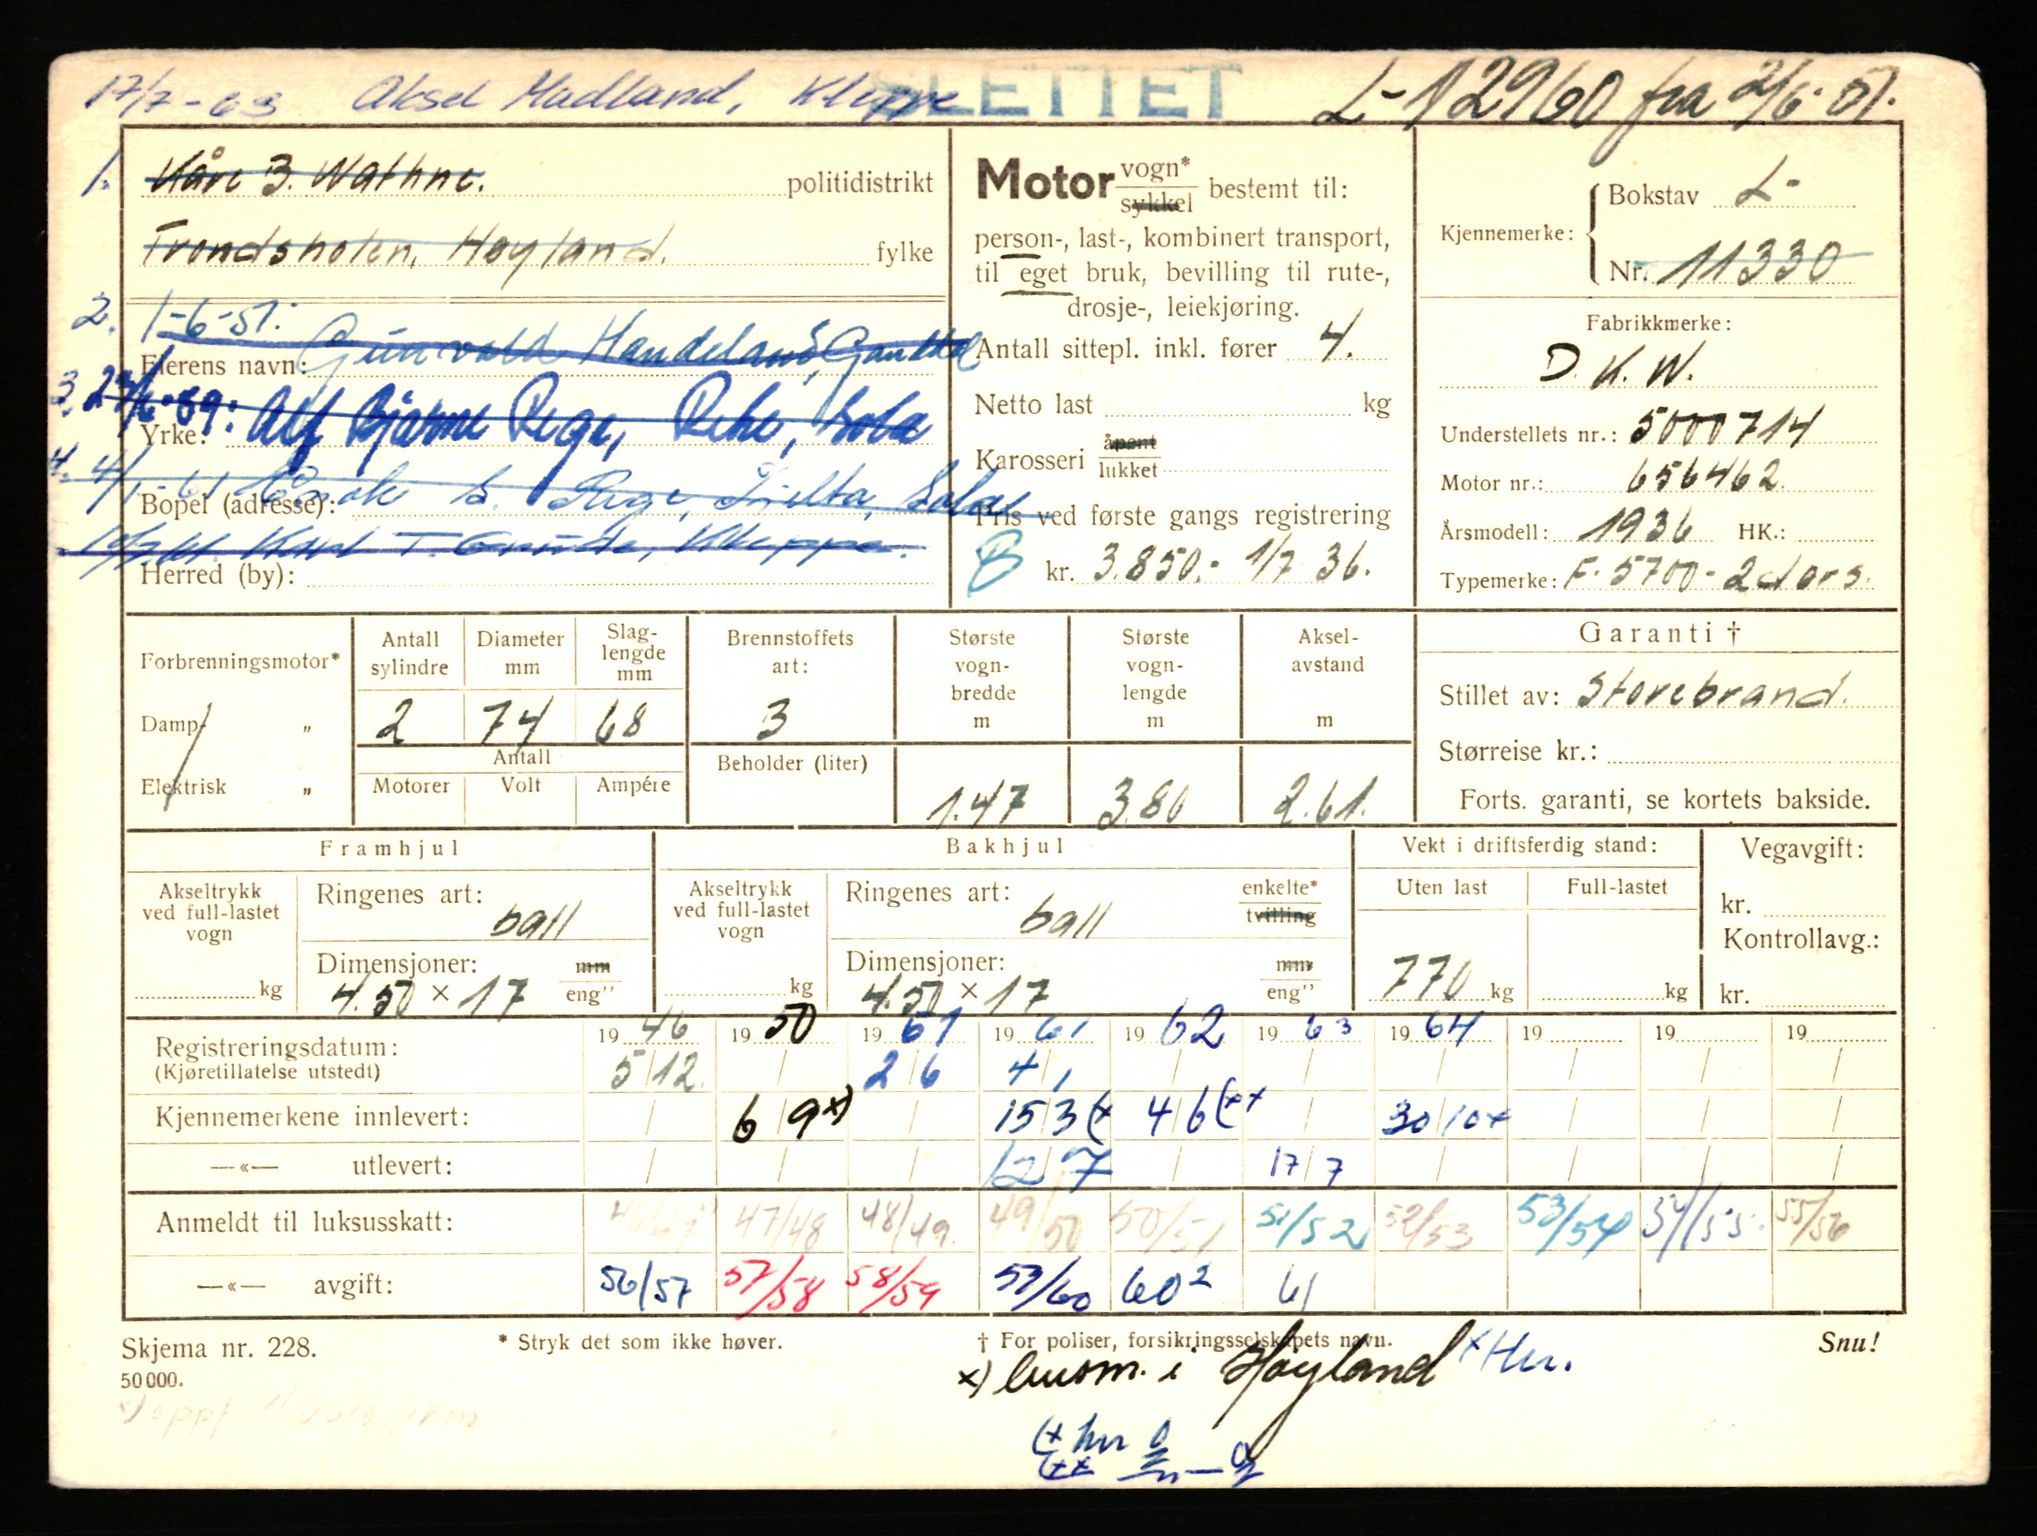 17/7-63 Aksel Madland, Kleppe SLETTET L-12960 fra 2/6-51.
1. Kåre B. Wathne. politidistrikt
Trondsholen, Høyland. fylke
2. 1-6-51:
Eierens navn: Gunvald Handeland, Ganddal
3. 2 /6-59: Alf Bjarne Rege, Reke, Sola
Yrke:
4. 4/1-61 S. Rege, Sola
Bopel (adresse):
T. Kleppe.
Herred (by):
Motor vogn* / sykkel bestemt til:
person-, last-, kombinert transport,
til eget bruk, bevilling til rute-,
drosje-, leiekjøring.
Antall sittepl. inkl. fører 4.
Netto last kg
Karosseri åpent / lukket
Pris ved første gangs registrering
B kr. 3.850,- 1/7 36.
Kjennemerke: Bokstav L-
Nr. 11330
Fabrikkmerke:
D.K.W.
Understellets nr.: 5000714
Motor nr.: 656462
Årsmodell: 1936 HK.:
Typemerke: F. 5700- 2dørs.
Forbrenningsmotor*
Damp- „
Elektrisk „
Antall sylindre Diameter mm Slag-lengde mm
2 74 68
Antall
Motorer Volt Ampére
Brennstoffets art:
3
Beholder (liter)
Største vogn-bredde m
1.47
Største vogn-lengde m
3.80
Aksel-avstand m
2.61.
Garanti †
Stillet av: Storebrand.
Størreise kr.:
Forts. garanti, se kortets bakside.
Framhjul
Akseltrykk ved full-lastet vogn
kg
Ringenes art:
ball
Dimensjoner: mm
4.50 × 17 eng”
Bakhjul
Akseltrykk ved full-lastet vogn
kg
Ringenes art: enkelte* / tvilling
ball
Dimensjoner: mm
4.50 × 17 eng”
Vekt i driftsferdig stand:
Uten last Full-lastet
770 kg kg
Vegavgift:
kr.
Kontrollavg.:
kr.
1946 1950 1961 1962 1963 1964 19 19 19
Registreringsdatum: 5/12 2/6 4/1
(Kjøretillatelse utstedt)
Kjennemerkene innlevert: 6/9 x) 15/3 (x 4/6 (xx 30/10 x
—«— utlevert: 12/7 17/7
Anmeldt til luksusskatt: 47/48 48/49 49/50 50/51 51/52 52/53 53/54 54/55 55/56
—«— avgift: 56/57 57/58 58/59 59/60 60² 61
Skjema nr. 228. * Stryk det som ikke høver. † For poliser, forsikringsselskapets navn. Snu!
50 000.
x) i Høyland x Hn.
(x hn
(xx